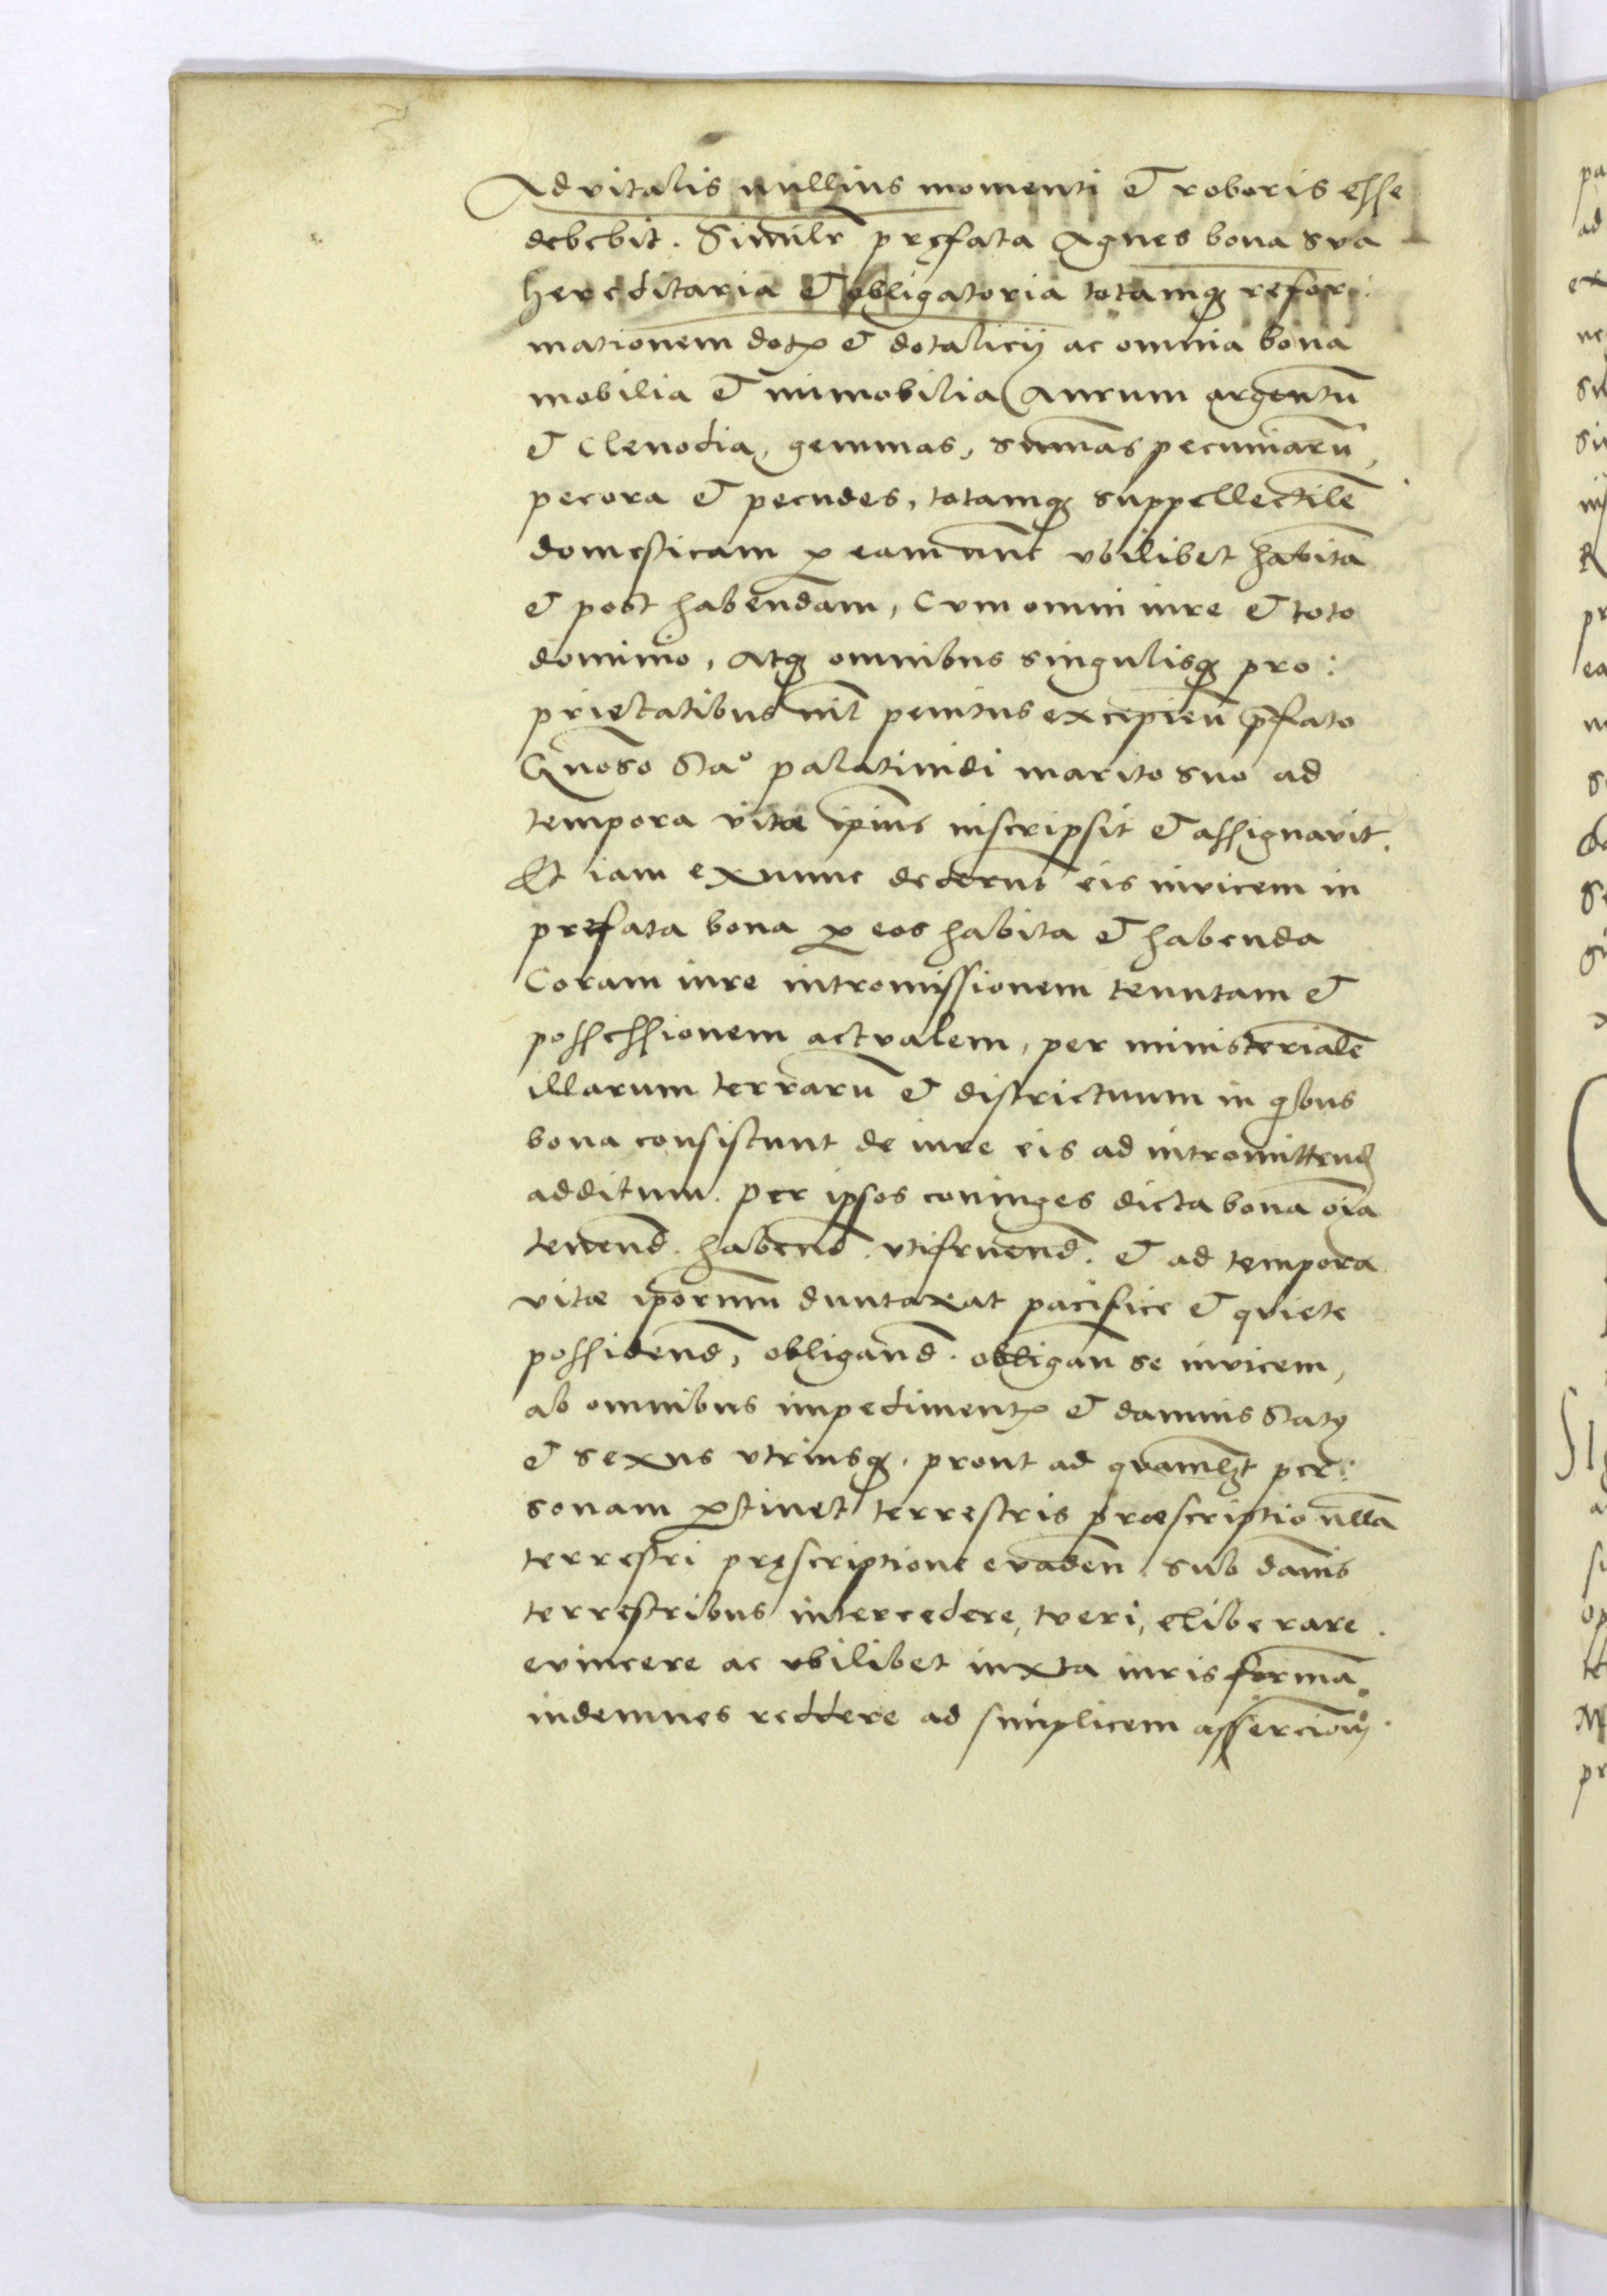 Advitalis nullius momenti et roboris esse
debebit. Similr̄ pręfata Agnes bona sua
hereditaria et obligatoria totamq refor:
mationem dotꝭ et dotalicij ac omnia bona
mobilia et immobilia Aurum argentū
et Clenodia, gemmas, summas pecuniarū,
pecora et pecudes, totamq suppellectilē
domesticam ꝑ eam nunc vbilibet habitā
et post habendam, Cum omni iure et toto
dominio, Atq omnibus singulisq pro:
prietatibus nil penitus excipien̄ p̄fato
Gn̄oso Stao palatinidi marito suo ad
tempora vitæ ip̄ius inscripsit et assignavit.
Et iam exnunc dederunt eis invicem in
prefata bona ꝑ eos habita et habenda
Coram iure intromissionem tenutam et
possessionem actualem, per ministerialē
illarum terrarū et districtuum in qibus
bona consistunt de iure eis ad intromittend
additum. per ipsos coniuges dicta bona oīa
tenend̄. habend̄. vtifruend̄. et ad tempora
vitæ ip̄orum duntaxat pacifice et quiete
possidend̄, obligand̄. obligan̄ se invicem,
ab omnibus impedimentꝭ et damnis Statꝰ
et sexus vtriusq, prout ad quamlꝫt per:
sonam ꝑtinet terrestris præscriptio nllā
terrestri pręscriptione evaden̄ sub damnis
terrestribus intercedere, tueri, eliberare.
evincere ac vbilibet iuxta iuris formā
indemnes reddere ad simplicem assercionē